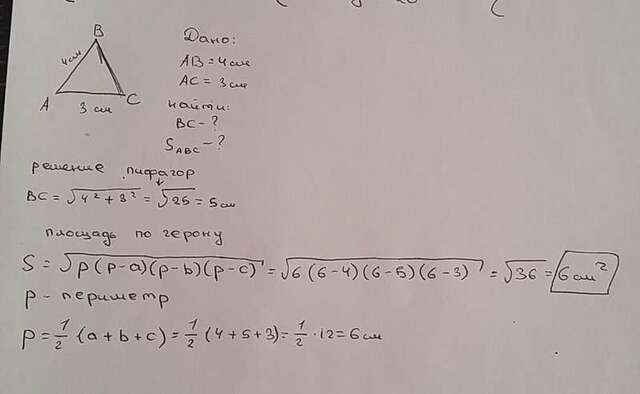 B
4см
A
C
3 см
Дано:
AB = 4см
AC = 3см
найти:
BC - ?
S_ABC - ?
решение пифагор
BC = √4² + 3² = √25 = 5см
площадь по герону
S = √p(p-a)(p-b)(p-c) = √6(6-4)(6-5)(6-3) = √36 = 6см²
p - периметр
p = 1/2 (a+b+c) = 1/2 (4+5+3) = 1/2 · 12 = 6см